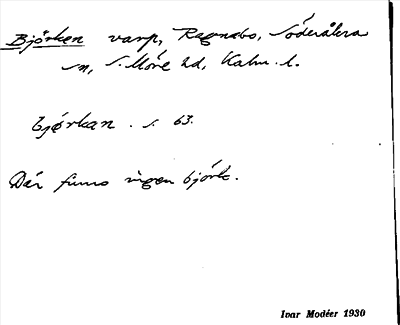 Björken varp, Ragnabo, Söderåkra
sn, S. Möre hd, Kalm. l.
björkan . s. 63.
Där finns ingen björk.
Ivar Modéer 1930